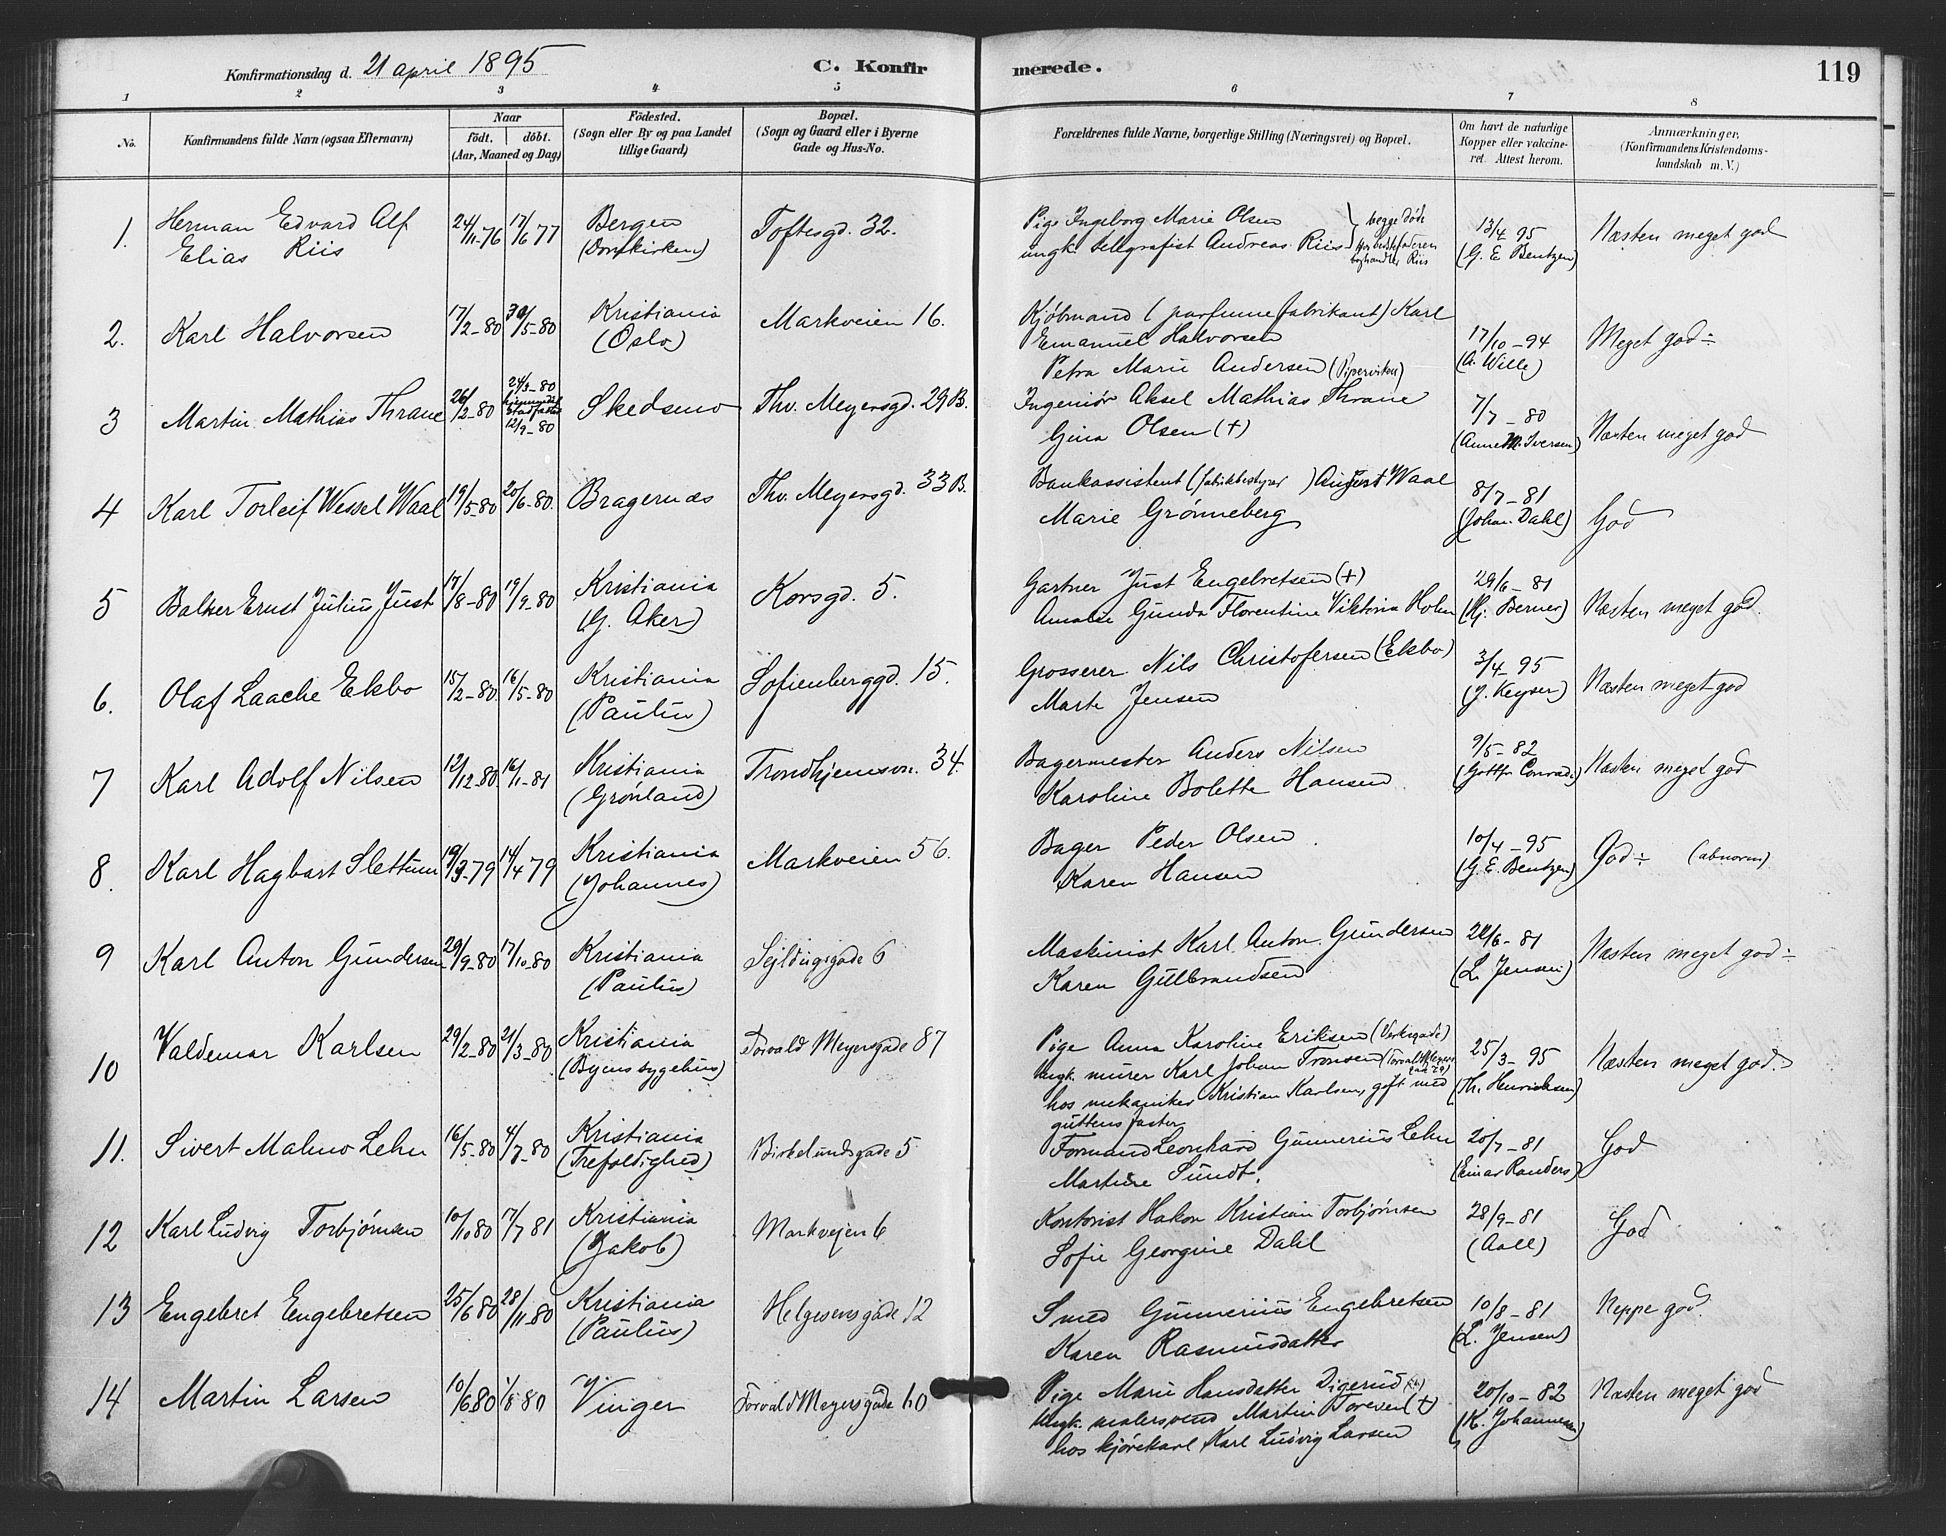 Konfirmationsdag d. 21 april 1895 C. Konfirmerede. 119
1 2 3 4 5 6 7 8
No. Konfirmandens fulde Navn (ogsaa Efternavn) Naar födt. döbt. (Aar, Maaned og Dag) Födested. (Sogn eller By og paa Landet tillige Gaard) Bopæl. (Sogn og Gaard eller i Byerne Gade og Hus-No. Forældrenes fulde Navne, borgerlige Stilling (Næringsvei) og Bopæl. Om havt de naturlige Kopper eller vakcineret. Attest herom. Anmærkninger. (Konfirmandens Kristendomskundskab m. V.)
1. Herman Edvard Alf Elias Riis 24/11-76 17/6 77 Bergen (Domkirken) Toftesgd. 32.
Pige Ingeborg Marie Olsen
ungk. telegrafist Andreas Riis } begge døde
Hos bedstefaderen boghandler Riis
13/4 95 (G. E Bentzen) Næsten meget god
2. Karl Halvorsen 17/2-80 30/5-80 Kristiania (Oslo) Markveien 16.
Kjøbmand (parfumefabrikant) Karl
Emanuel Halvorsen
Petra Marie Andersen (Pipervirken)
17/10-94 (A. Wille) Meget god÷
3 Martin Mathias Thrane 26/2-80 24/3-80 hjemmedøbt Stadfæstet 12/9-80 Skedsmo Thv. Meyersgd. 29 B.
Ingeniör Aksel Mathias Thrane
Gina Olsen (+)
7/7-80 (Anne M. Iversen) Næsten meget god
4 Karl Torleif Wessel Waal 19/5-80 20/6-80. Bragernæs Thv. Meyersgd. 33 B.
Bankassistent (fabrikbestyrer) August Waal
Marie Grønneberg
8/7-81 (Johan Dahl) God
5 Balker Ernst Julius Just 17/8-80 19/9-80 Kristiania (G. Aker) Korsgd. 5.
Gartner Just Engebretsen (+)
Amalie Gunda Florentine Viktoria Holm
29/6-81 (Hj. Berner) Næsten meget god.
6. Olaf Laache Ekbo 15/2-80. 16/5-80 Kristiania (Paulus) Sofienberggd. 15.
Grosserer Nils Christofersen (Ekbo)
Marte Jensen
3/4-95 (J. Keyser) Næsten meget god
7 Karl Adolf Nilsen 12/12-80. 16/1-81 Kristiania (Grønland) Trondhjemsvn. 34.
Bagermester Anders Nilsen
Karoline Bolette Hansen
9/5-82 (Gottfr. Conradi) Næsten meget god
8. Karl Hagbart Slettum 19/3-79 14/4 79 Kristiania (Johannes) Markveien 56.
Bager Peder Olsen
Karen Hansen
10/4-95 (G. E. Bentzen) God÷ (abnorm)
9 Karl Anton Gundersen 29/9-80 17/10-80 Kristiania (Paulus) Sejldugsgade 6
Maskinist Karl Anton Gundersen
Karen Gulbrandsen
22/6-81 (L. Jensen) Næsten meget god÷
10 Valdemar Karlsen 29/2-80 21/3-80 Kristiania (Byens sygehus) Torvald Meyersgade 87
Pige Anna Karoline Eriksen (Verksgade)
Ungk. murer Karl Johan Tronsen (Torvald Meyersgade 29)
hos mekaniker Kristian Karlsen, gift med
guttens faster
25/3-95 (Th. Henriksen) Næsten meget god.
11. Sivert Malmo Lehn 16/5-80 4/7-80 Kristiania (Trefoldighed) Birkelundsgade 5
Formand Leonhard Gunnerius Lehn
Martine Sundt.
20/7-81 (Einar Randers) God
12 Karl Ludvig Torbjørnsen 10/10 80 17/7 81 Kristiania (Jakob) Markvejen 6
Kontorist Hakon Kristian Torbjørnsen
Sofie Georgine Dahl
28/9-81 (Aall) God
13 Engebret Engebretsen 25/6 80 28/11-80 Kristiania (Paulus) Helgesensgade 12
Smed Gunnerius Engebretsen
Karen Rasmusdatter
10/8-81 (L. Jensen) Neppe god.
14 Martin Larsen 10/6 80 1/8 80 Vinger Torvald Meyersgade 60
Pige Marie Hansdatter Digerud
Ungk. malersvend Martin Toresen (+)
hos kjørekarl Karl Ludvig Larsen
20/10-82 (K. Johannesen) Næsten meget god